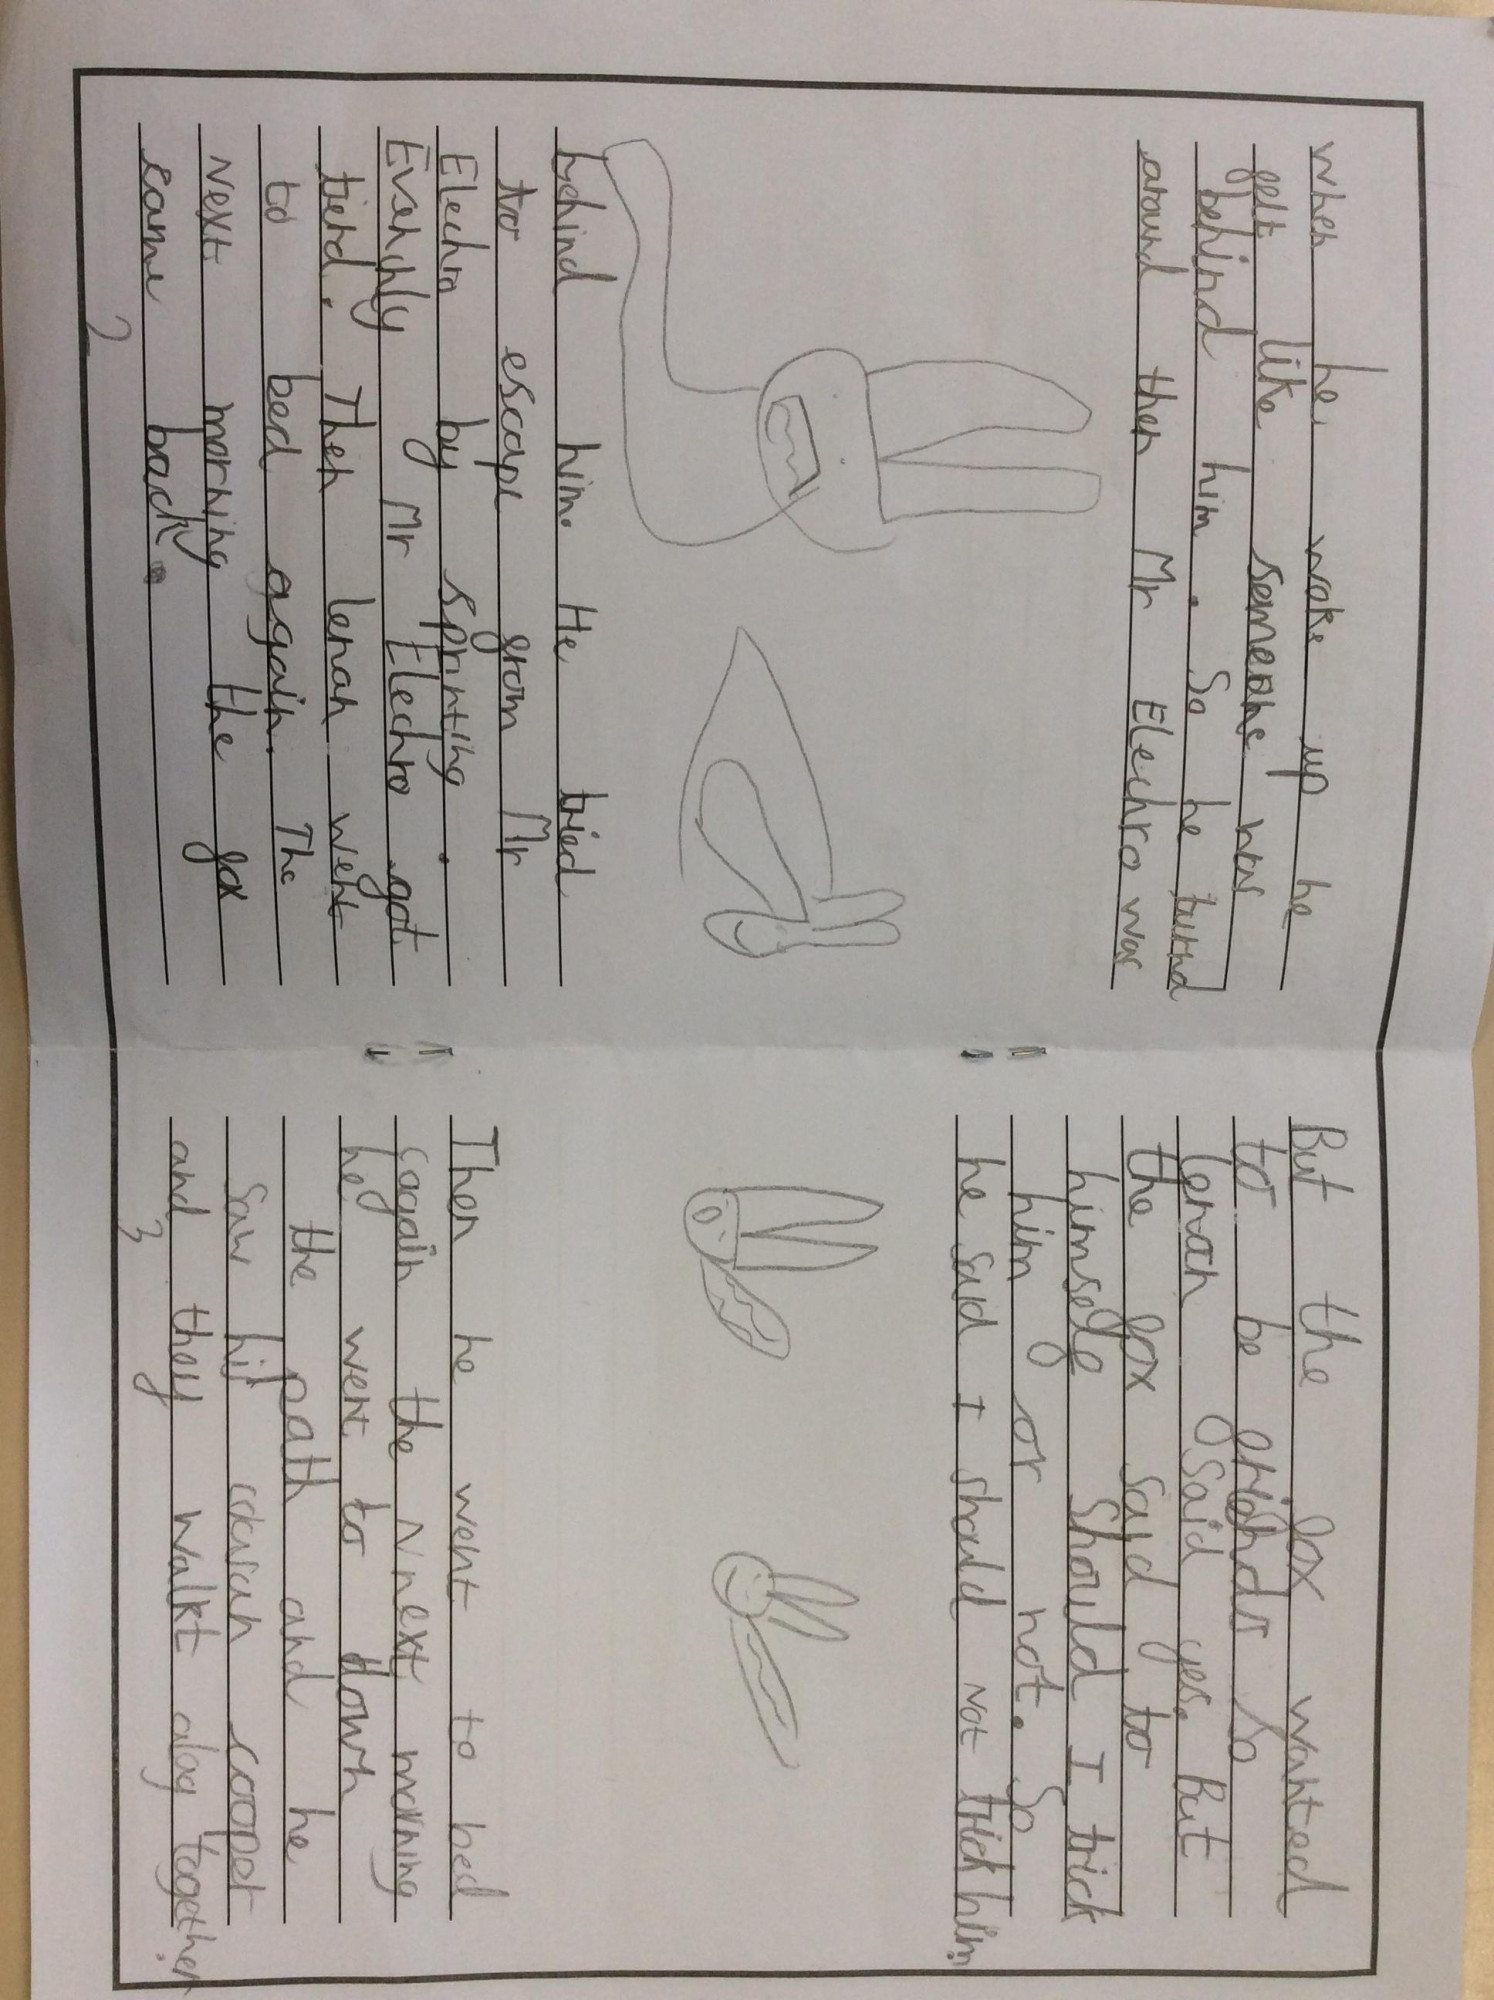 when he woke up he
felt like someone was
behind him. So he turnd
around then Mr Elechro was
behind him. He tried
to escape from Mr
Elechro by sprinting.
Evenchly Mr Elechro got
tierd. Then lenah went
to bed again. The
next morning the fox
came back.
2
But the fox wanted
to be friends so
lenah said yes. But
the fox said to
himself Should I trick
him or not. So
he said I should not trick him.
Then he went to bed
again the Nnext morning
he went to down
the path and he
saw his cousan cooper
and they walkt alog together.
3